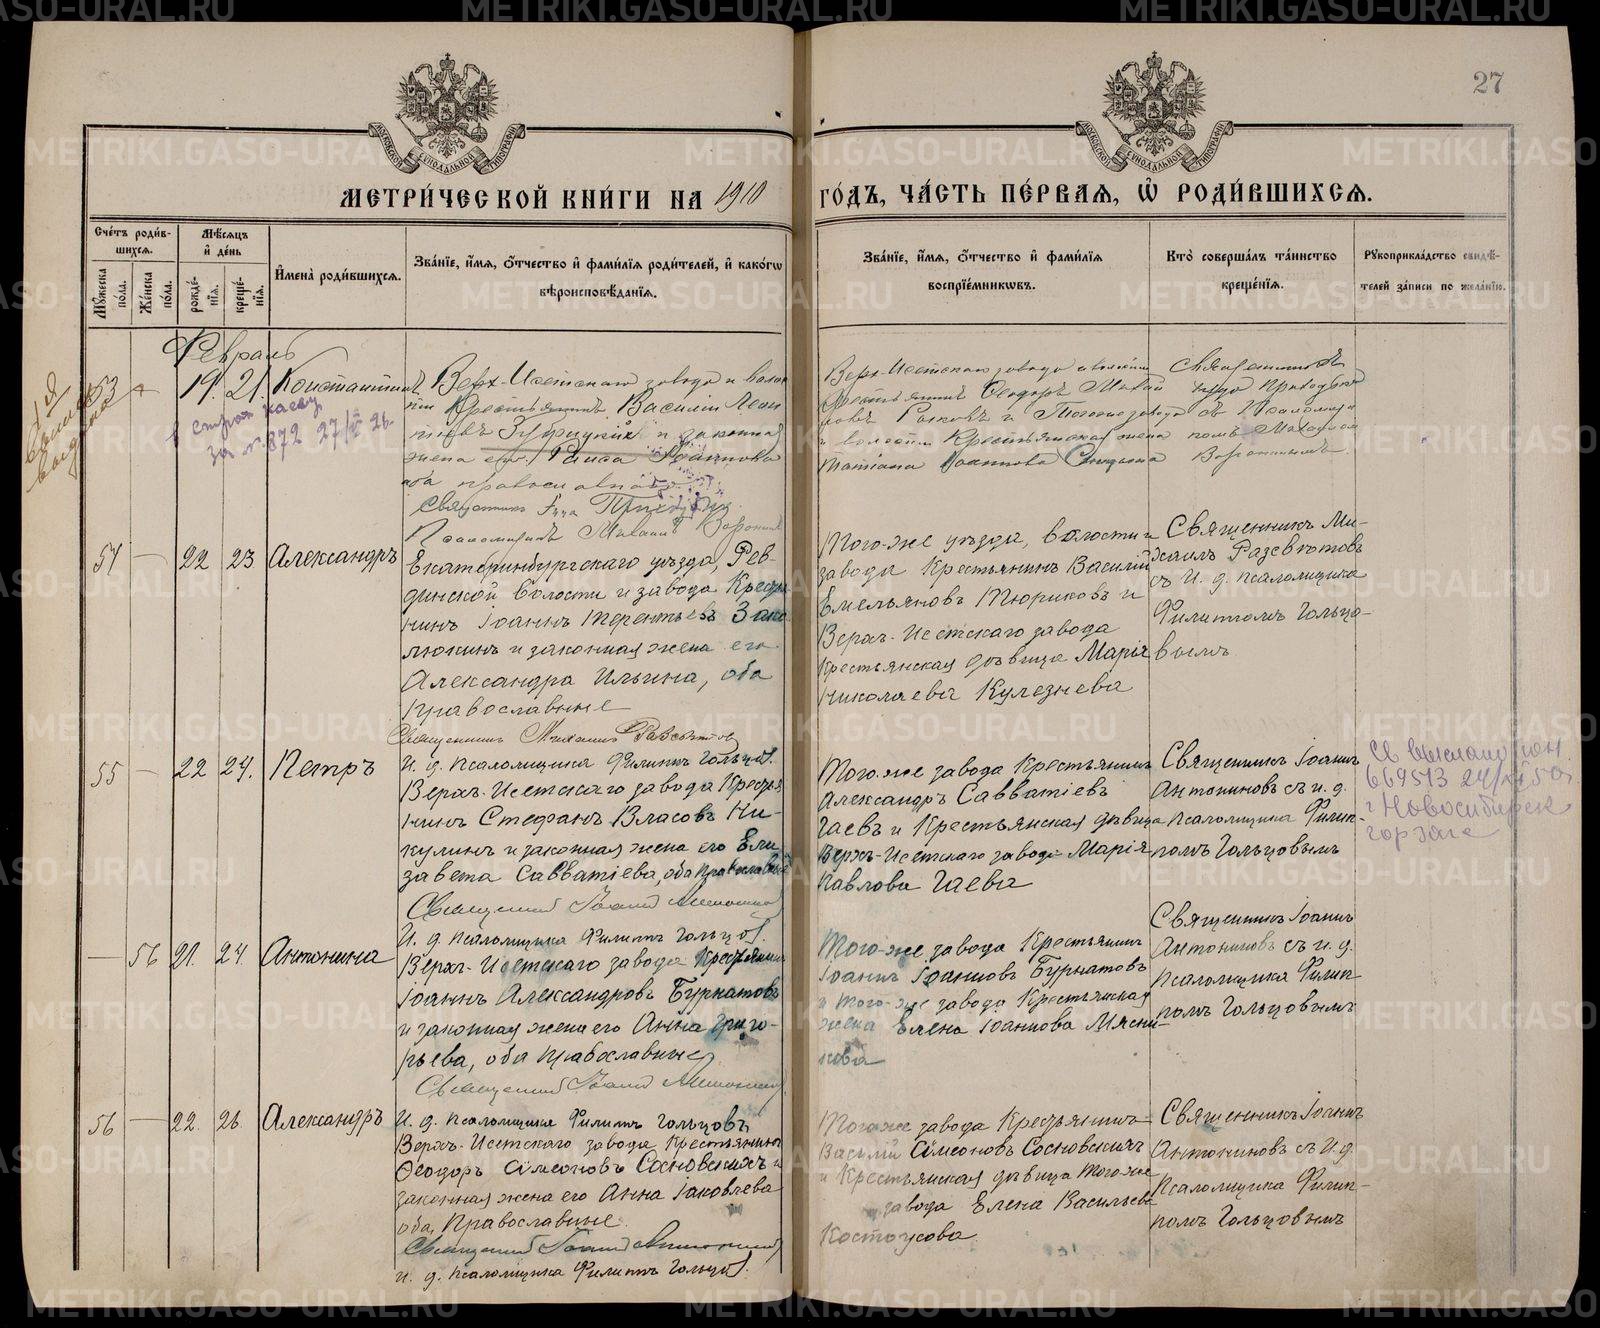 27
МЕТРИ́ЧЕСКОЙ КНИ́ГИ НА 1910 ГО́ДЪ, ЧА́СТЬ ПЕ́РВАЯ, Ѡ҆ РОДИ́ВШИХСЯ.
Сче́тъ роди́вшихся.
Мꙋ́жеска по́ла.
Же́нска по́ла.
Мѣ́сяцъ и҆ де́нь
рожде́нїѧ.
креще́нїѧ.
И҆мена̀ роди́вшихсѧ.
Зва́нїе, и҆́мѧ, ѻ҆́тчество и҆ фами́лїѧ роди́телей, и҆ како́гѡ
вѣроисповѣ́данїѧ.
Зва́нїе, и҆́мѧ, ѻ҆́тчество и҆ фами́лїѧ
воспрїе́мникѡвъ.
Кто̀ соверша́лъ та́инство
креще́нїѧ.
Рꙋкоприкла́дство свидѣ́-
телей за́писи по жела́нїю.
Февраль
53
19. 21. Константинъ
Верх-Исетскаго завода и волос
Крестьянинъ Василій Леон
и законная
жена его Раиса Іоаннова
оба православн
Священник
Псаломщикъ Михаил
в страх кассу
за № 872 27/ 26
Священникъ
Псаломщи
комъ Михаилом
54 — 22 23 Александръ
Екатеринбургскаго уѣзда, Рев-
динской волости и завода Крестья
нинъ Іоаннъ Терентьевъ Зако
люкинъ и законная жена его
Александра Ильина, оба
православные
Священникъ Михаилъ Разсвѣтов
И. д. псаломщика Филиппъ Гольцов.
Того-же уѣзда, волости и
завода Крестьянинъ Василій
Емельяновъ Тюриковъ и
Верхъ-Исетскаго завода
крестьянская дѣвица Марія
Николаева Кулезнева
Священникъ Ми-
хаилъ Разсвѣтовъ
съ И. д. псаломщика
Филиппомъ Гольцо-
вымъ
55 — 22 24. Петръ
Верхъ-Исетскаго завода Крестья
нинъ Стефанъ Власовъ Ни-
кулинъ и законная жена его Ели
завета Савватіева, оба православные
Священникъ Іоанн Антонинов
И. д. псаломщика Филиппъ Гольцов.
Того-же завода Крестьянинъ
Александръ Савватіевъ
Гаевъ и Крестьянская дѣвица
Верхъ-Исетскаго завода Марія
Павлова Гаева
Священникъ Іоаннъ
Антониновъ съ и. д.
псаломщика Филип-
помъ Гольцовымъ
669513 24/XI 50
г Новосибирск
горзагс
— 56 21. 24. Антонина
Верхъ-Исетскаго завода Крестьянинъ
Іоаннъ Александровъ Бурнатовъ
и законная жена его Анна Григо-
рьева, оба православные
Священникъ Іоанн Антонинов
И. д. псаломщика Филиппъ Гольцовъ
Того-же завода Крестьянинъ
Іоаннъ Іоанновъ Бурнатовъ
и того-же завода Крестьянская
жена Елена Іоаннова Мясни-
кова
Священникъ Іоаннъ
Антониновъ съ и. д.
псаломщика Филип-
помъ Гольцовымъ
56 — 22. 26. Александръ
Верхъ-Исетскаго завода Крестьянинъ
Ѳеодоръ Симеоновъ Сосновскихъ и
законная жена его Анна Іаковлева
оба Православные.
Священникъ Іоанн Антонинов
И. д. псаломщика Филиппъ Гольцов.
Того-же завода Крестьянинъ
Василій Симеоновъ Сосновскихъ
и Крестьянская дѣвица того-же
завода Елена Васильева
Костоусова
Священникъ Іоаннъ
Антониновъ съ И. д.
Псаломщика Филип-
помъ Гольцовымъ
METRIKI.GASO-URAL.RU